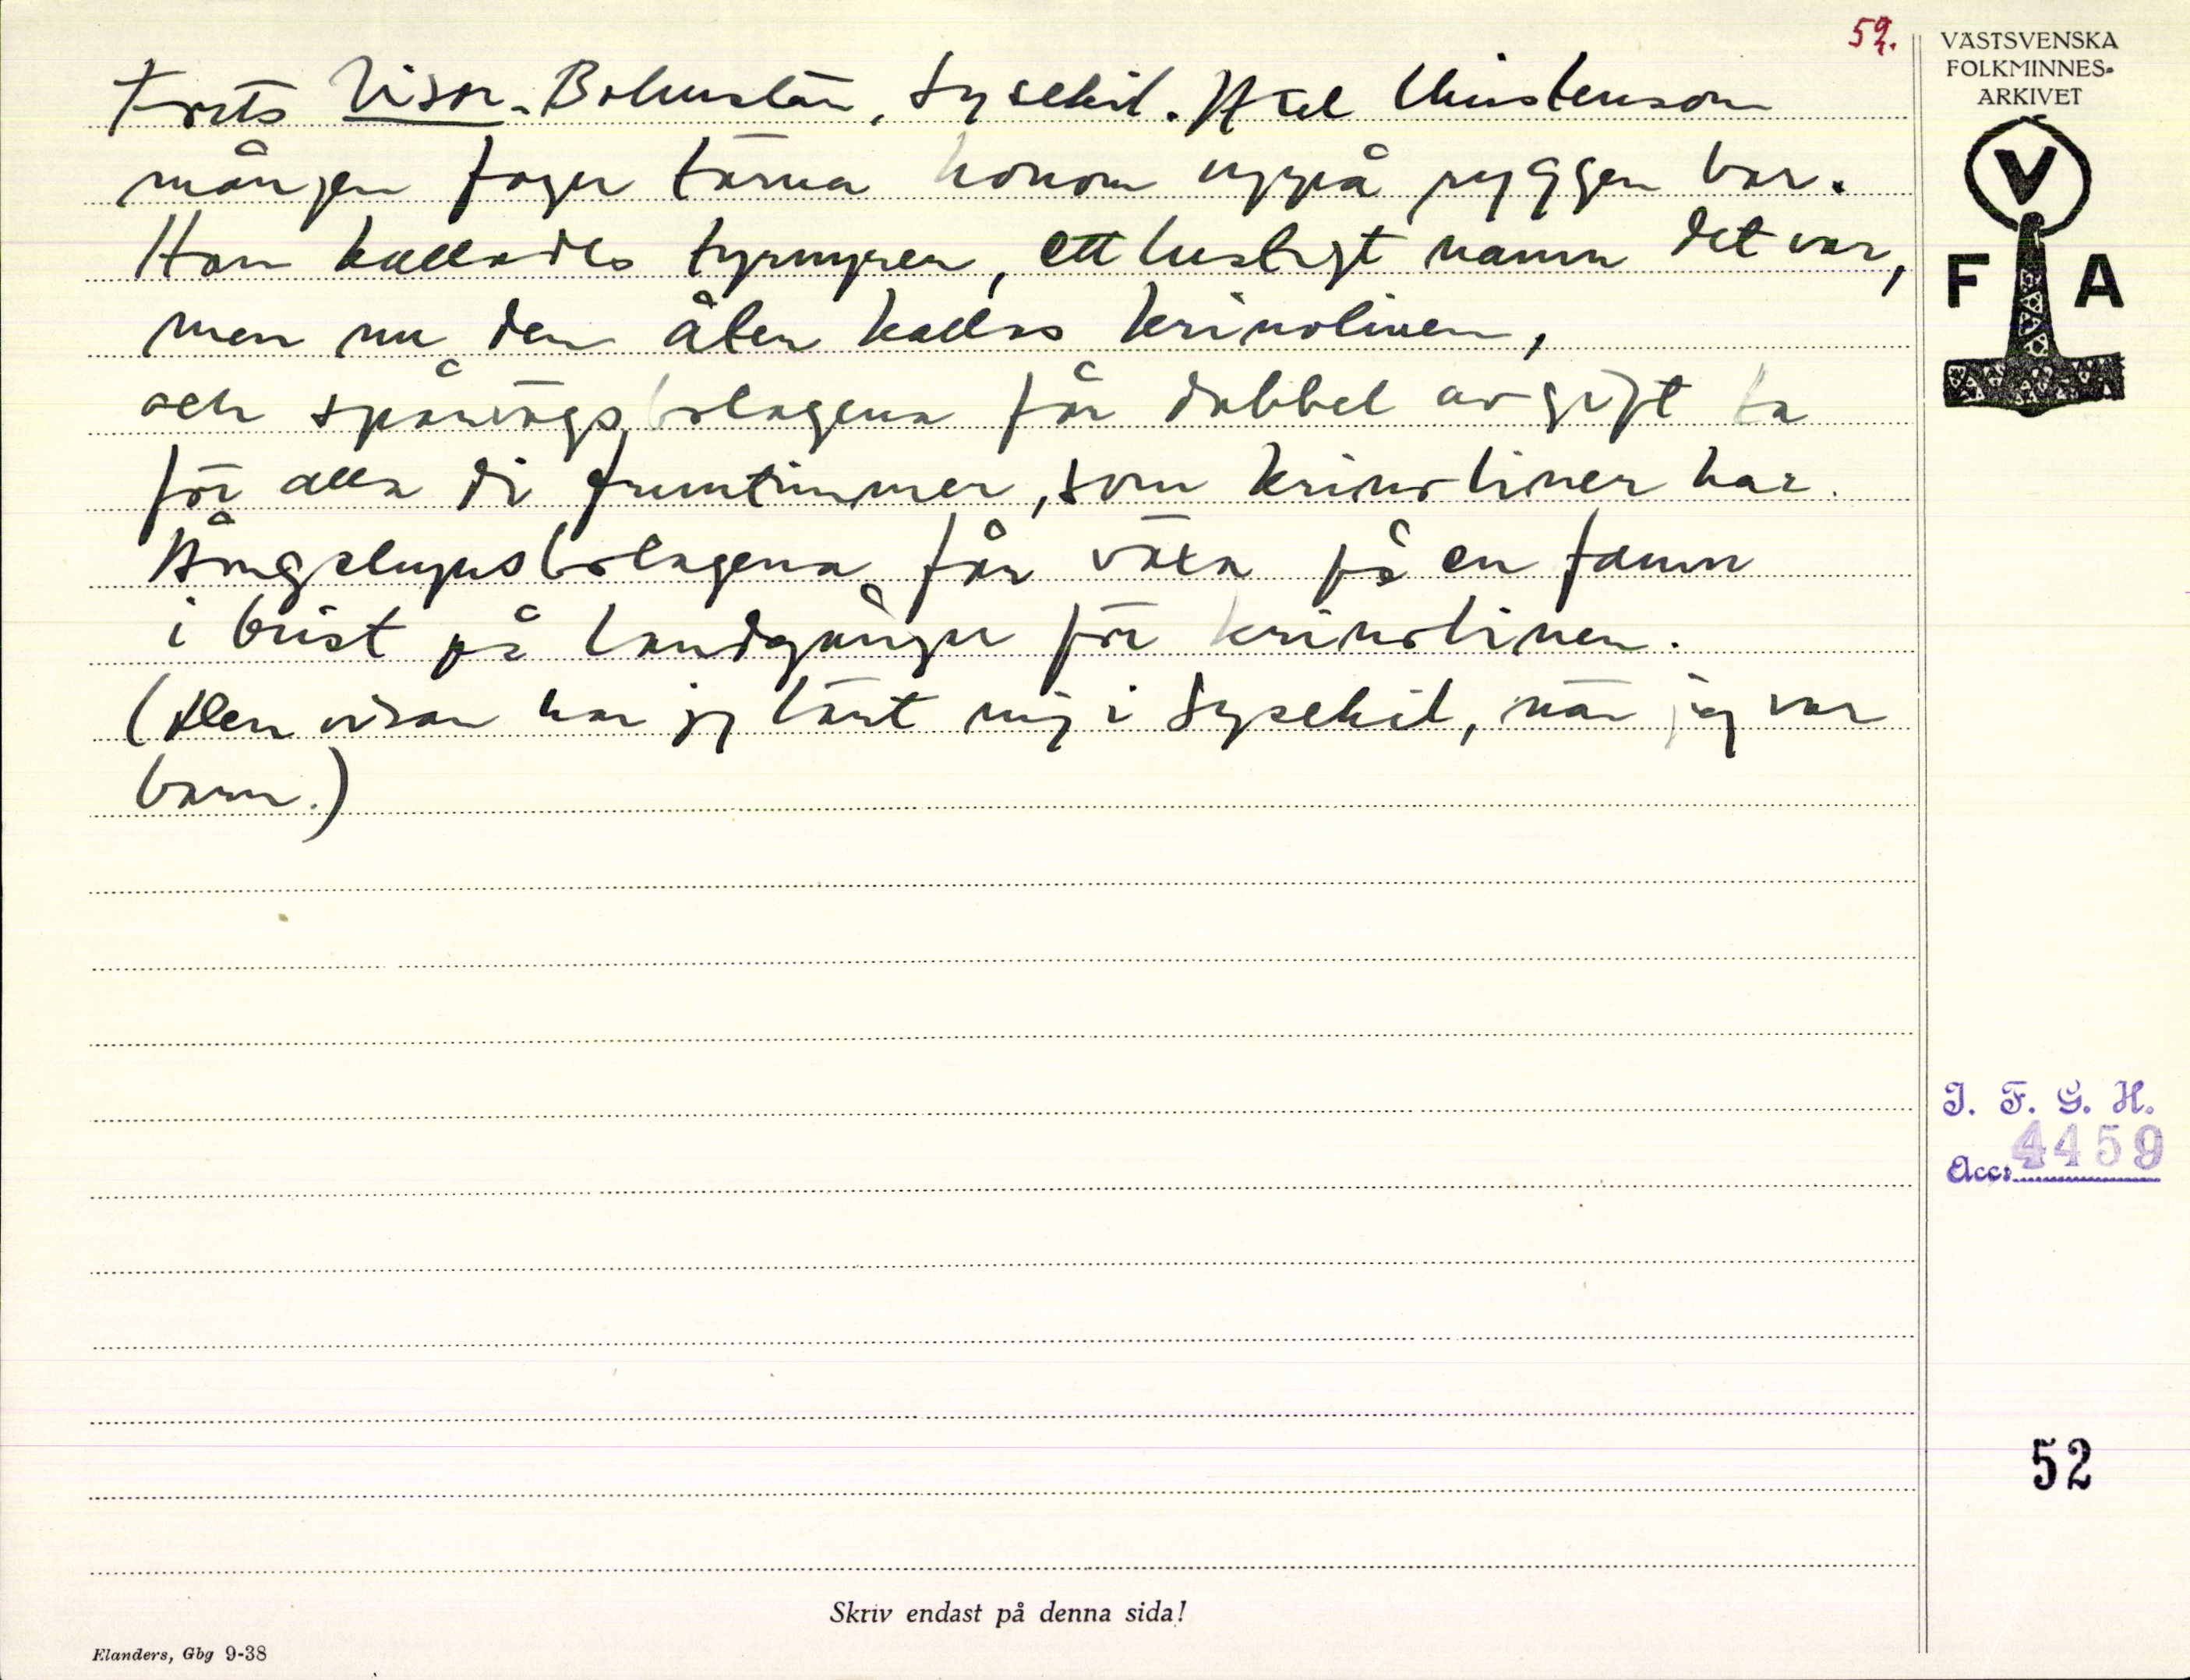 52.
Forts Visor. Bohuslän, Lysekil. Axel Christenson
mången fager tärna honom uppå ryggen bar.
Han kallades tyrnyren, ett lustigt namn det var,
men nu den åter kallas krinolinen,
och spårvägsbolagena får dubbel avgift ta
för alla di fruntimmer, som krinoliner har.
Ångslupsbolagena får växa på en famn
i brist på landgånger för krinolinen.
(Den visan har jag lärt mig i Lysekil, när jag var
barn.)
VÄSTSVENSKA
FOLKMINNES-
ARKIVET
V
F A
I. F. G. H.
Acc. 4459
52
Skriv endast på denna sida!
Elanders, Gbg 9-38